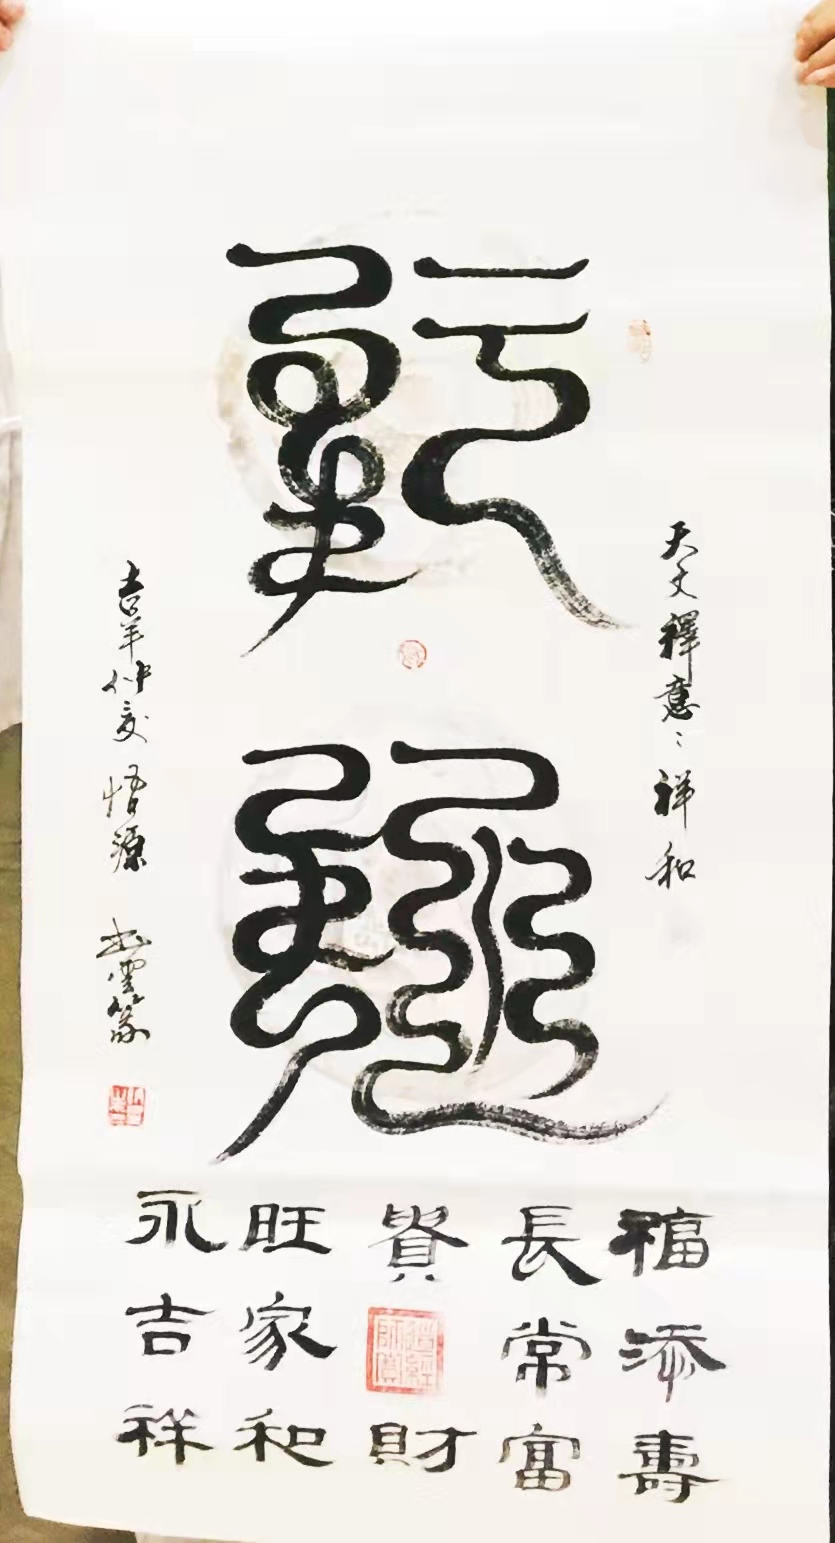 天文釋意：祥和
吉羊仲夏 悟源 書雲篆
福添壽
長常富
貴財
旺家和
永吉祥
道經師寶